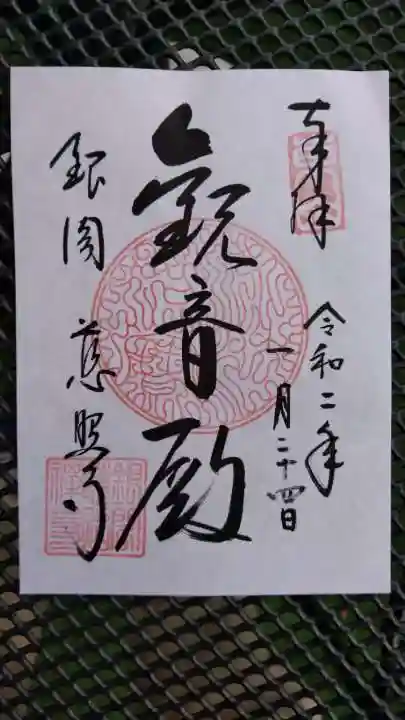 奉拝
令和二年
一月二十四日
観音殿
銀閣 慈照寺